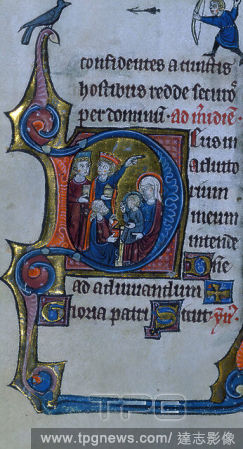 confidentes a cunctis
hostibus redde securos
per dominum. ad mediem.
Deus in
adiuto
rium
meum
intende
Dne
ad adiuuandum
Gloria patri Sicut
TPG
www.tpgnews.com / 達志影像